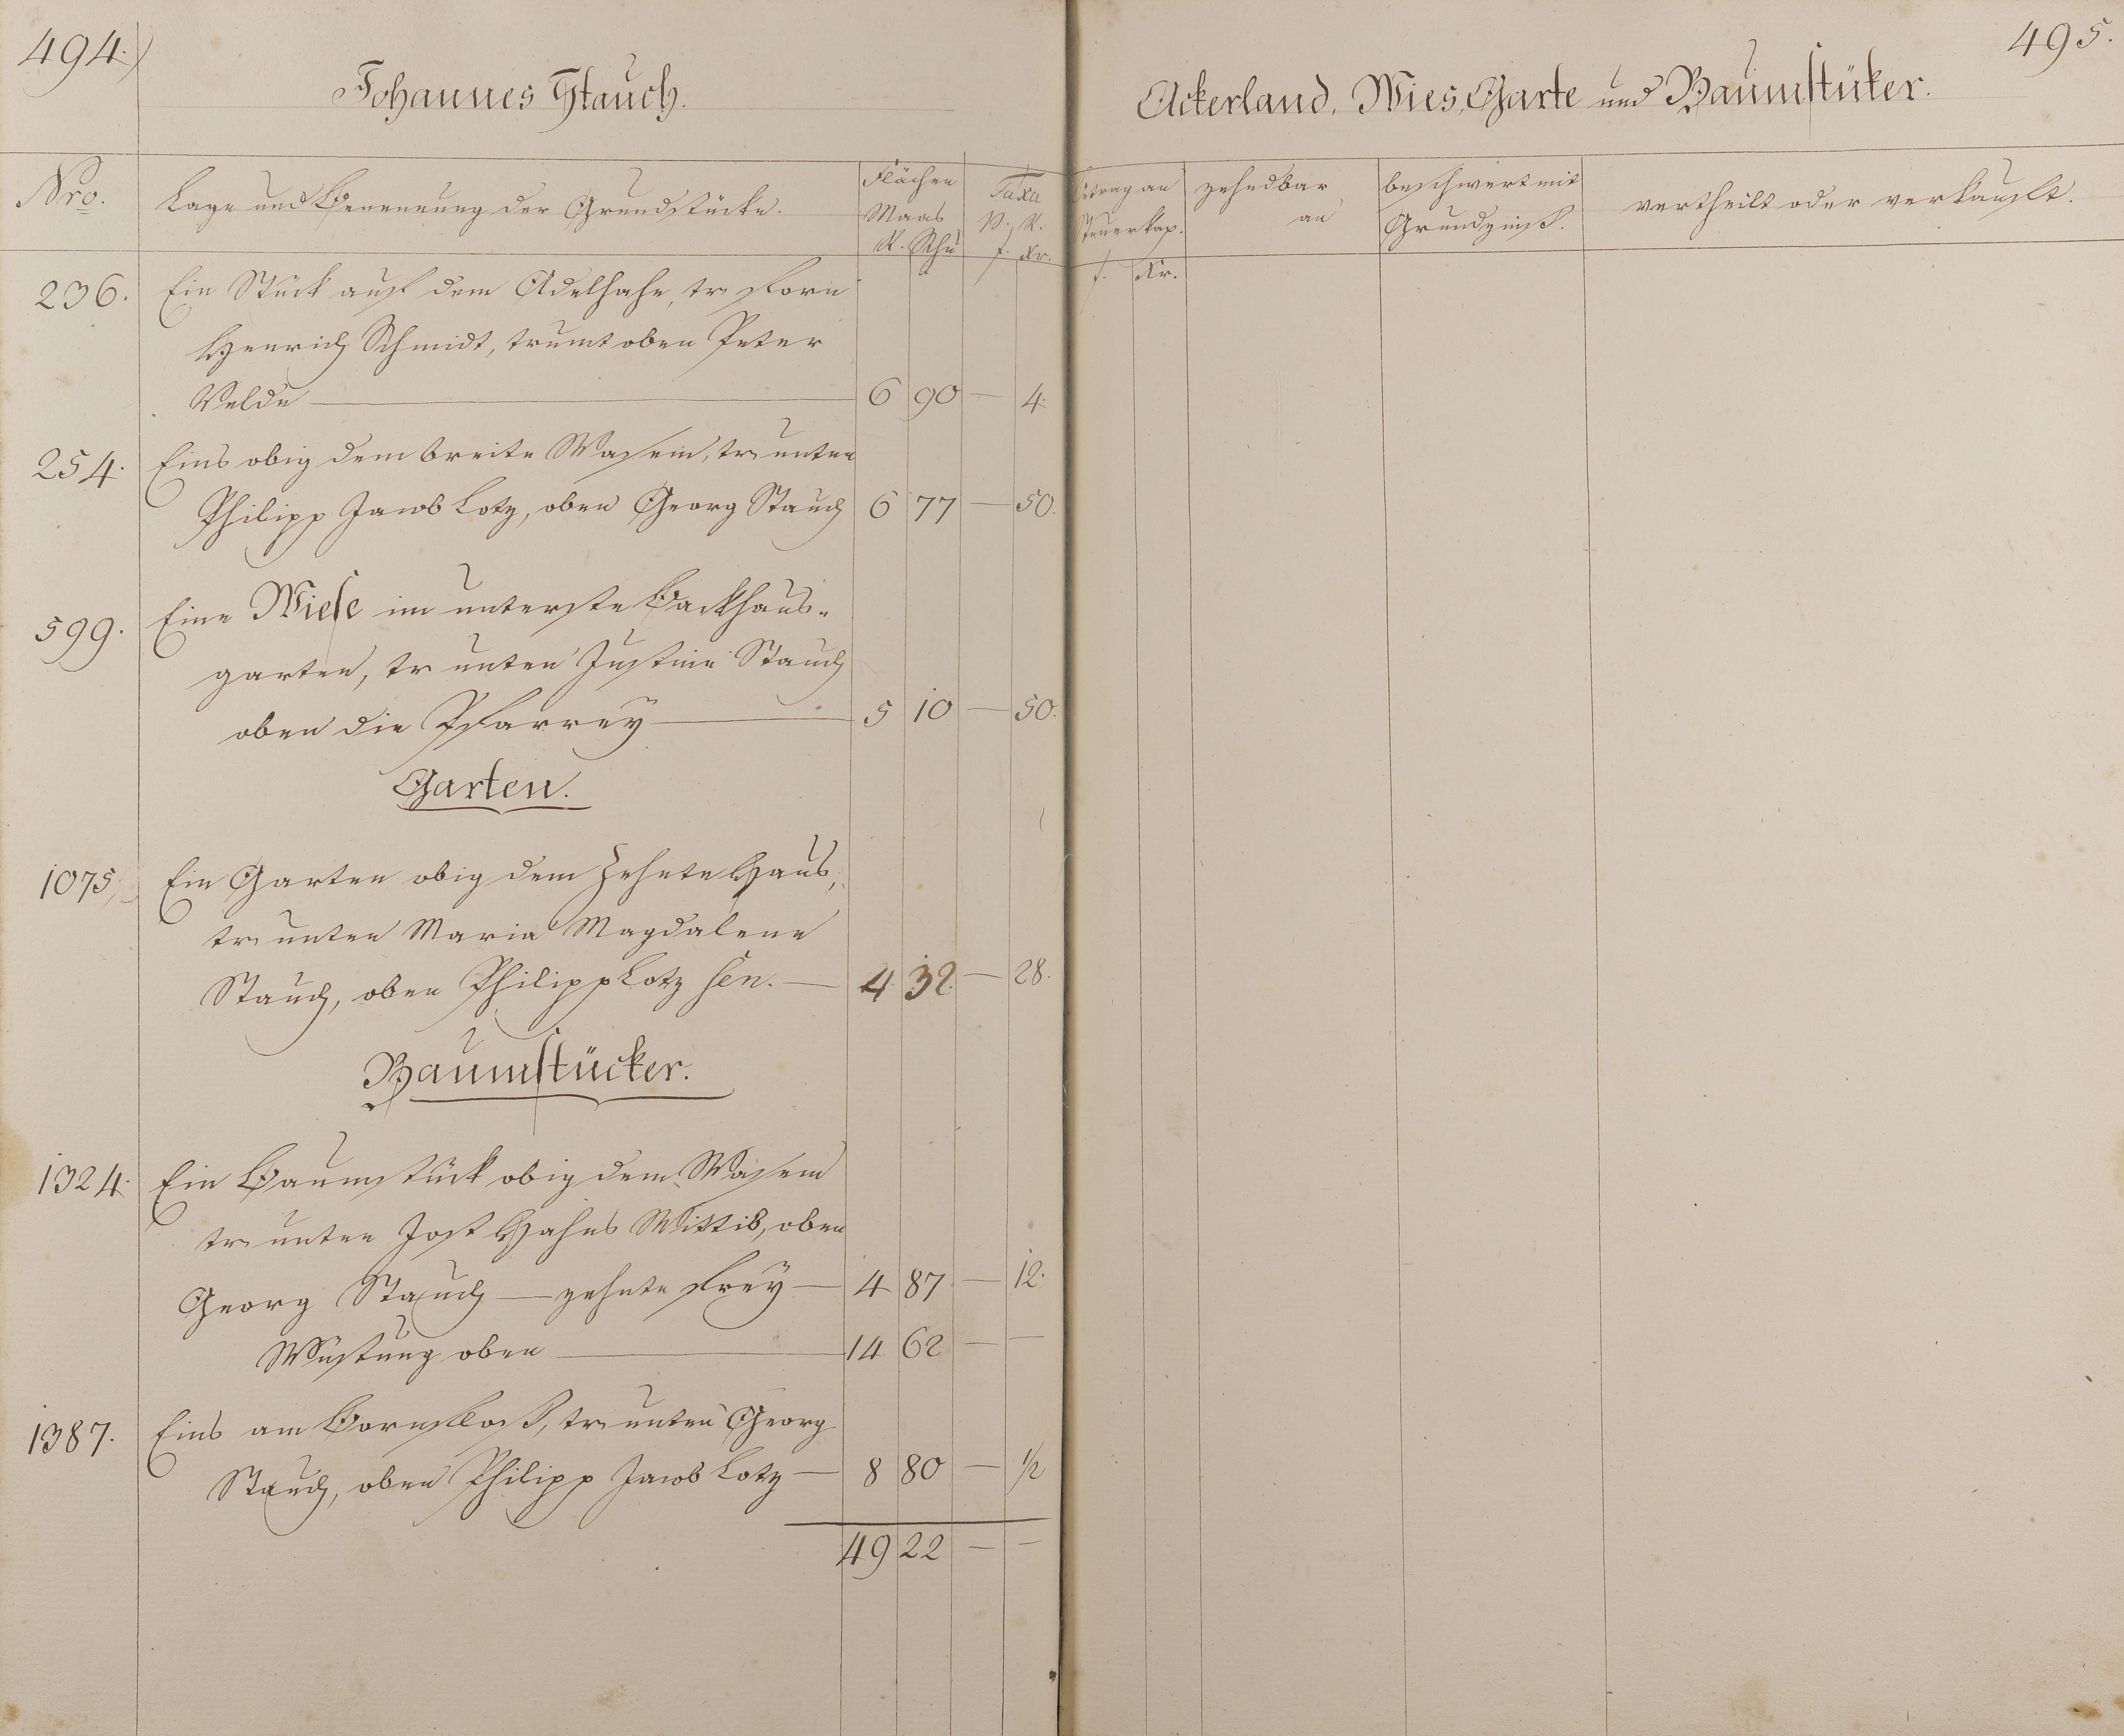 494.
Johannes Stauch.
Nro. Lage und Benennung der Grundstücke. Flächen Maas R. Schu Taxa p. R. f. Kr.
236. Ein Stück auf dem Adelhahe, tr. forn
Henrich Schmidt, trumt oben Peter
Velde 6 90 — 4.
254. Eins obig dem breite Wasem, tr. unten
Philipp Jacob Lotz, oben Georg Stauch 6 77 — 50.
599. Eine Wiese im unterste Backhaus-
garten, tr unten Justine Stauch
oben die Pfarrey 5 10 — 50.
Garten.
1075, Ein Garten obig dem Zehnte Haus,
tr. unten Maria Magdalene
Stauch, oben Philipp Lotz sen. — 4 32. — 28.
Baumstücker.
1324. Ein Baumstück obig dem Wasem
tr. unten Jost Hahns Wittib, oben
Georg Stauch — zehnte frey — 4 87 — 12.
Wüstung oben — 14 62 — —
1387. Eins am Bornfloß, tr. unten Georg
Stauch, oben Philipp Jacob Lotz — 8 80 — 1/2
49 22 — —
495.
Ackerland, Wies, Garte und Baumstüker.
Betrag an Steuerkap. f. Kr. zehndbar an beschwert mit Grundzinß. vertheilt oder verkauft.